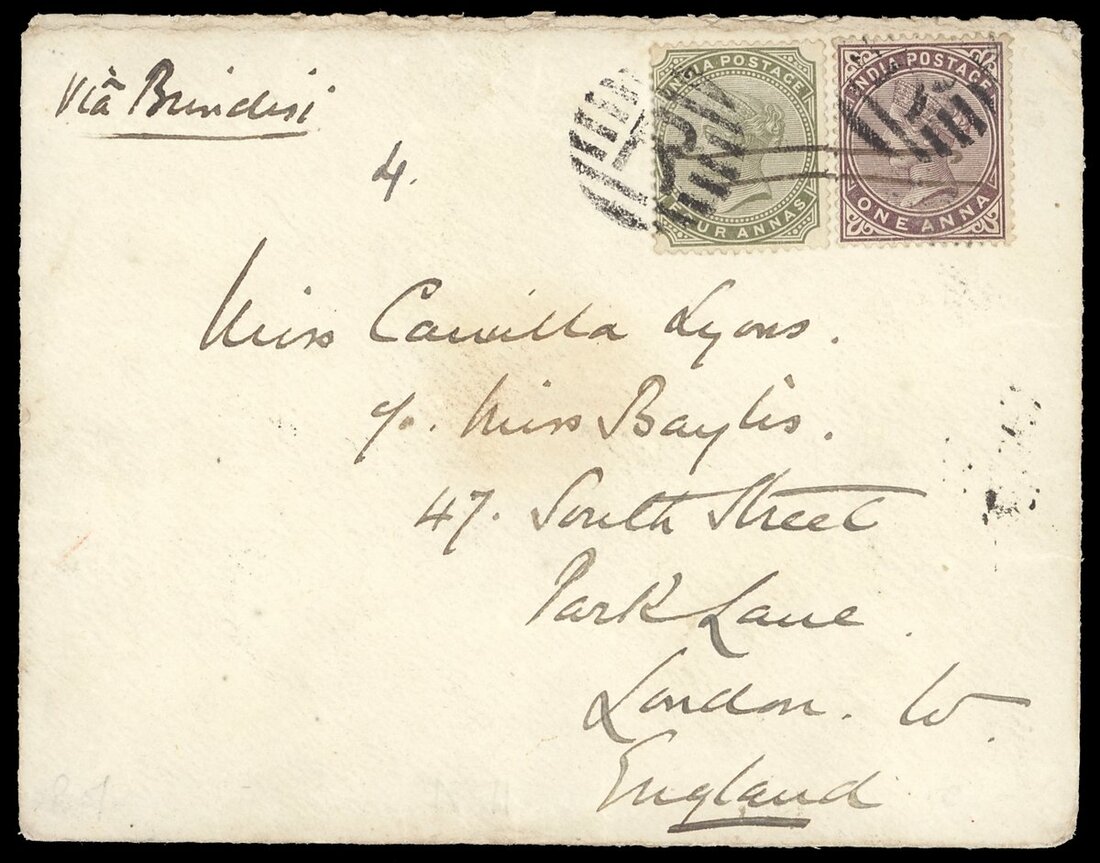 Viâ Brindisi
4.
INDIA POSTAGE
FOUR ANNAS
INDIA POSTAGE
ONE ANNA
Miss Camilla Lyons.
c/o. Miss Baylis.
47. South Street
Park Lane.
London. W.
England